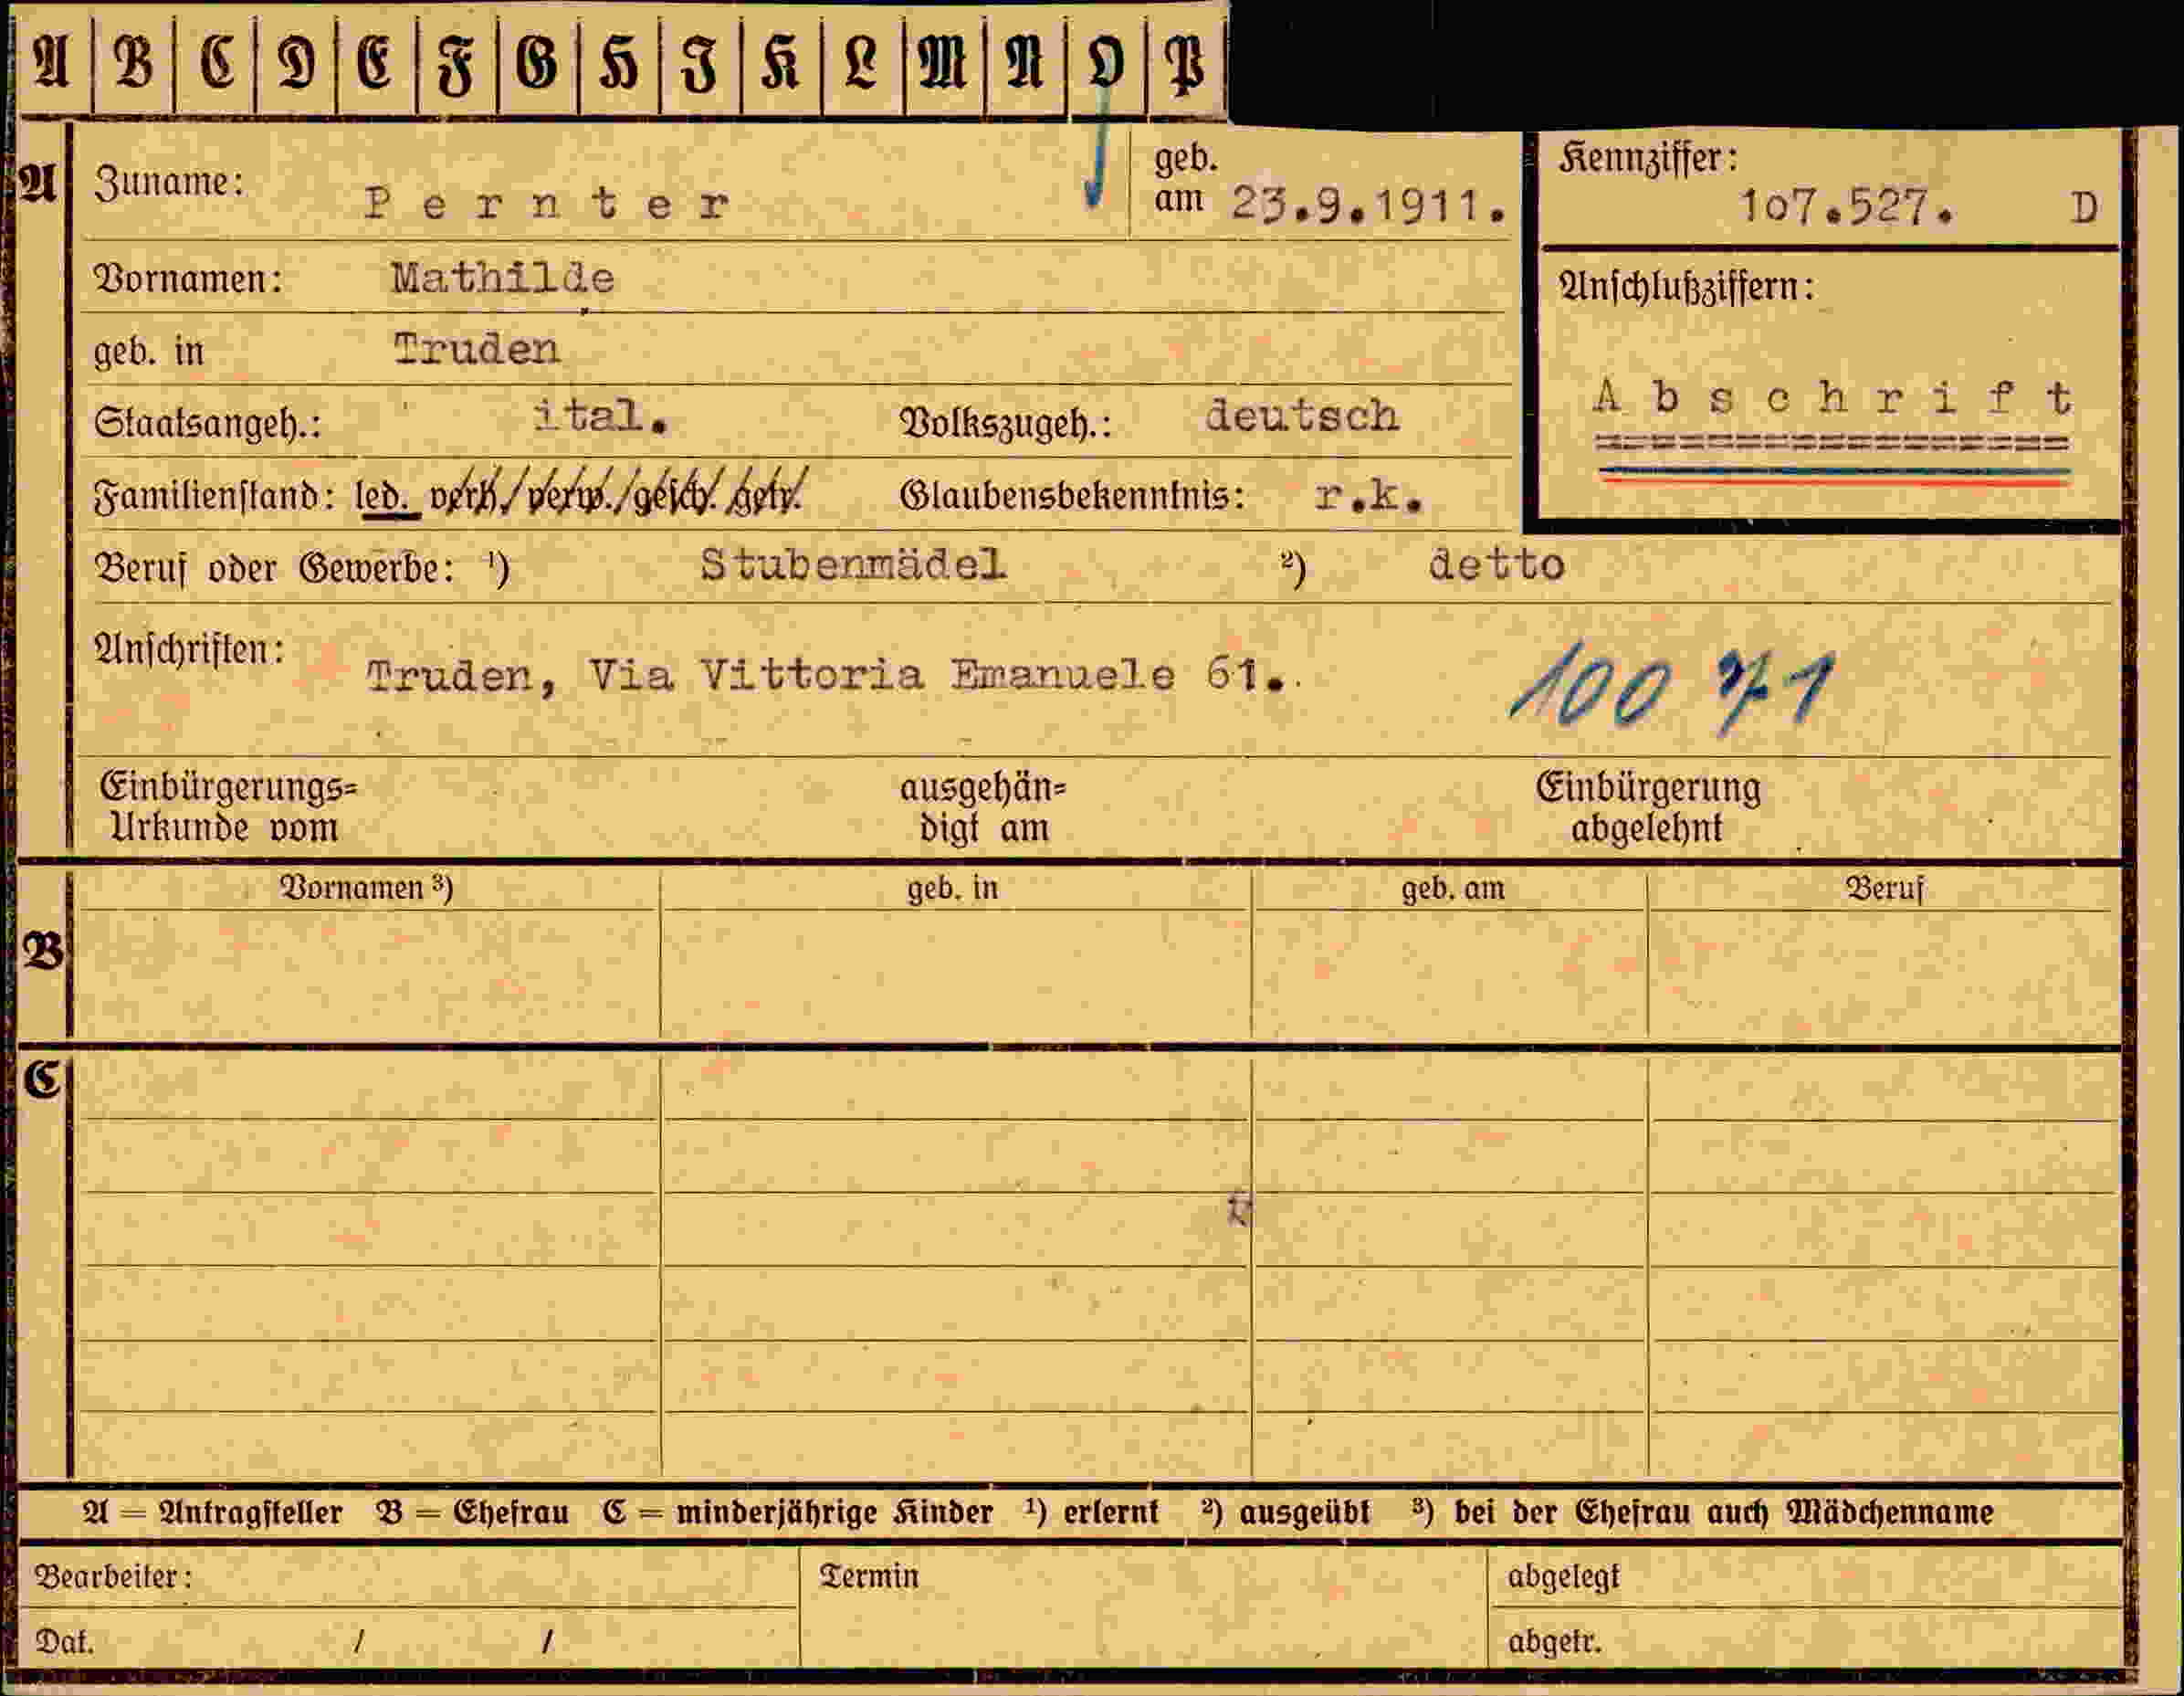 A B C D E F G H I K L M N O P
A Zuname: Pernter geb. am 23.9.1911. Kennziffer: 107.527. D
Vornamen: Mathilde
Anschlußziffern:
geb. in Truden
Abschrift
Staatsangeh.: ital. Volkszugeh.: deutsch
Familienstand: led. verh./verw./gesch. getr. Glaubensbekenntnis: r.k.
Beruf oder Gewerbe: ¹) Stubenmädel ²) detto
Anschriften: Truden, Via Vittoria Emanuele 61.
100 71
Einbürgerungs= ausgehän= Einbürgerung
Urkunde vom digt am abgelehnt
Vornamen ³) geb. in geb. am Beruf
B
C
A = Antragsteller B = Ehefrau C = minderjährige Kinder ¹) erlernt ²) ausgeübt ³) bei der Ehefrau auch Mädchenname
Bearbeiter: Termin abgelegt
Dat. / / abgetr.